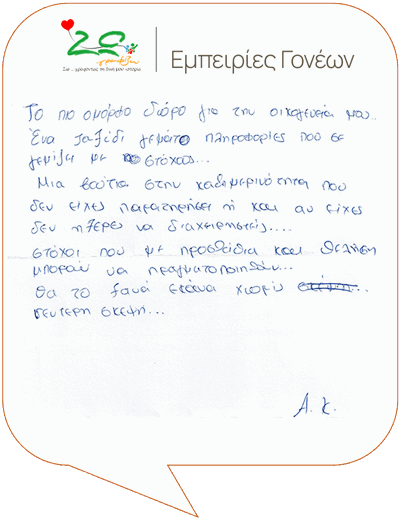 Εμπειρίες Γονέων
Ζω ... γράφοντας τη δική μου ιστορία
Το πιο όμορφο δώρο για την οικογένεια μου..
Ένα ταξίδι γεμάτο πληροφορίες που σε
γεμίζει με στόχους...
Μια βουτιά στην καθημερινότητα που
δεν είχες παρατηρήσει ή και αν είχες
δεν ήξερες να διαχειρηστείς....
στόχοι που με προσπάθεια και θέληση
μπορούν να πραγματοποιηθούν...
Θα το ξανά έκανα χωρίς
δεύτερη σκέψη...
Α.Κ.